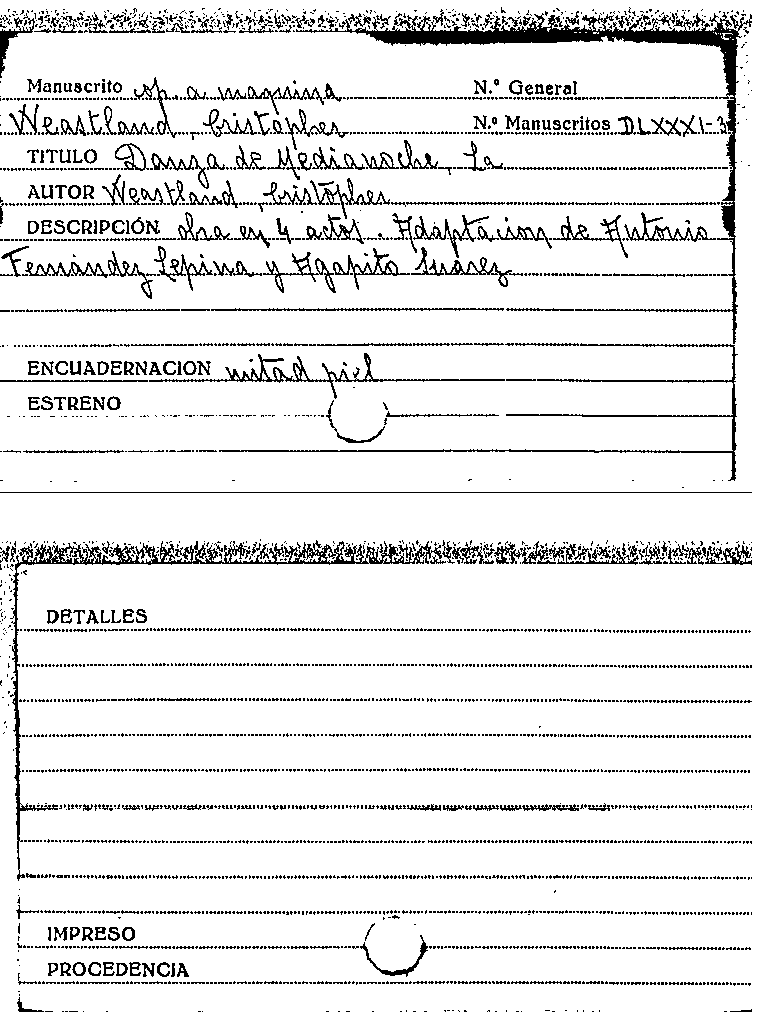 Manuscrito cop. a maquina N.º General
Weastland, Cristopher N.º Manuscritos DLXXXI-3
TITULO Danza de Medianoche, La
AUTOR Weastland, Cristopher
DESCRIPCIÓN obra en 4 actos. Adaptacion de Antonio
Fernández Lepina y Agapito Suárez
ENCUADERNACION mitad piel
ESTRENO
DETALLES
IMPRESO
PROCEDENCIA